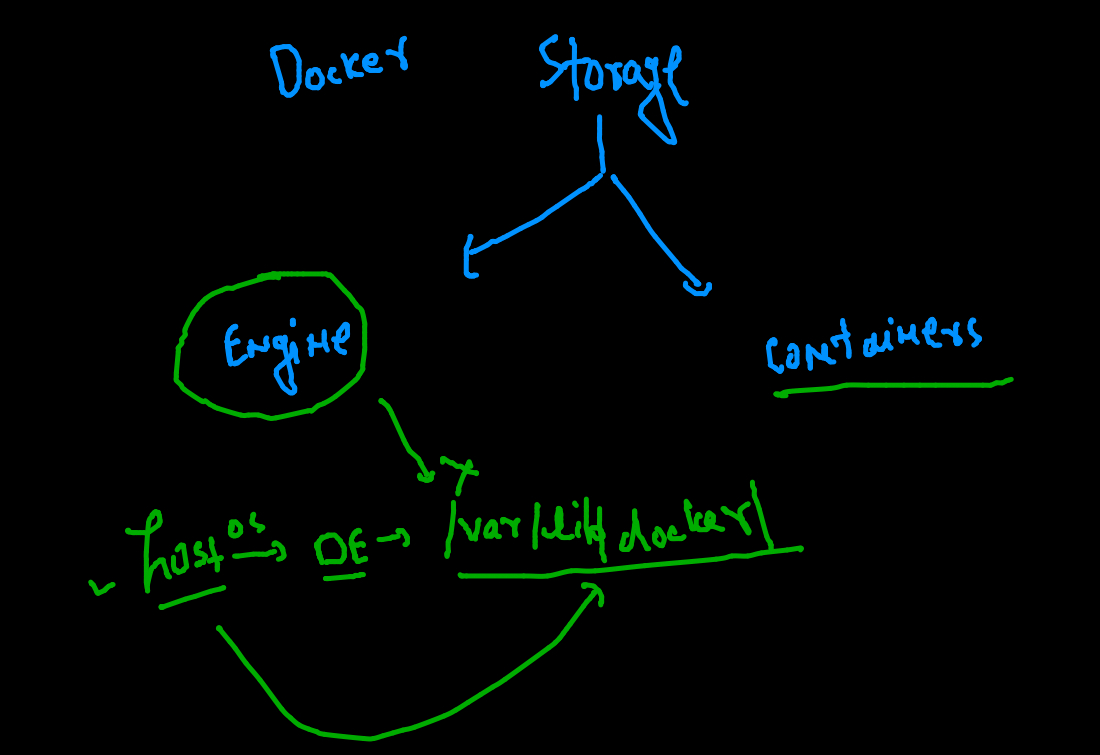 Docker Storage
Engine
containers
host os DE /var/lib/docker/